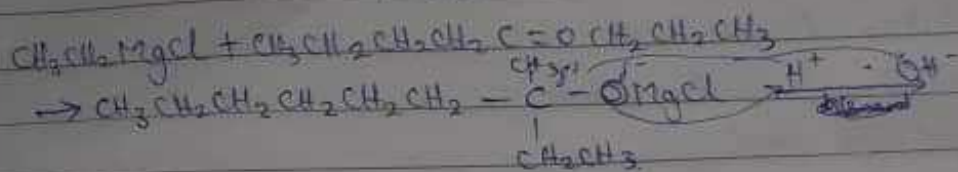 CH3CH2MgCl + CH3CH2CH2CH2C=OCH2CH2CH3
→ CH3CH2CH2CH2CH2CH2 - C - OMgCl H+ OH-
CH2CH3